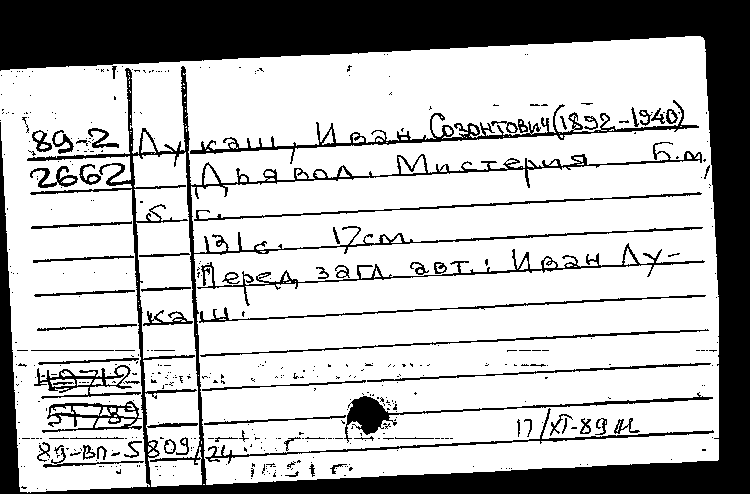 89-2 Лукаш, Иван Созонтович (1892-1940)
2662 Дьявол. Мистерия Б.м.,
б. г.
131 с. 17 см.
Перед загл. авт.: Иван Лу-
каш.
49712
51789
17/XI-89
89-вп-5809/24
1951 г.